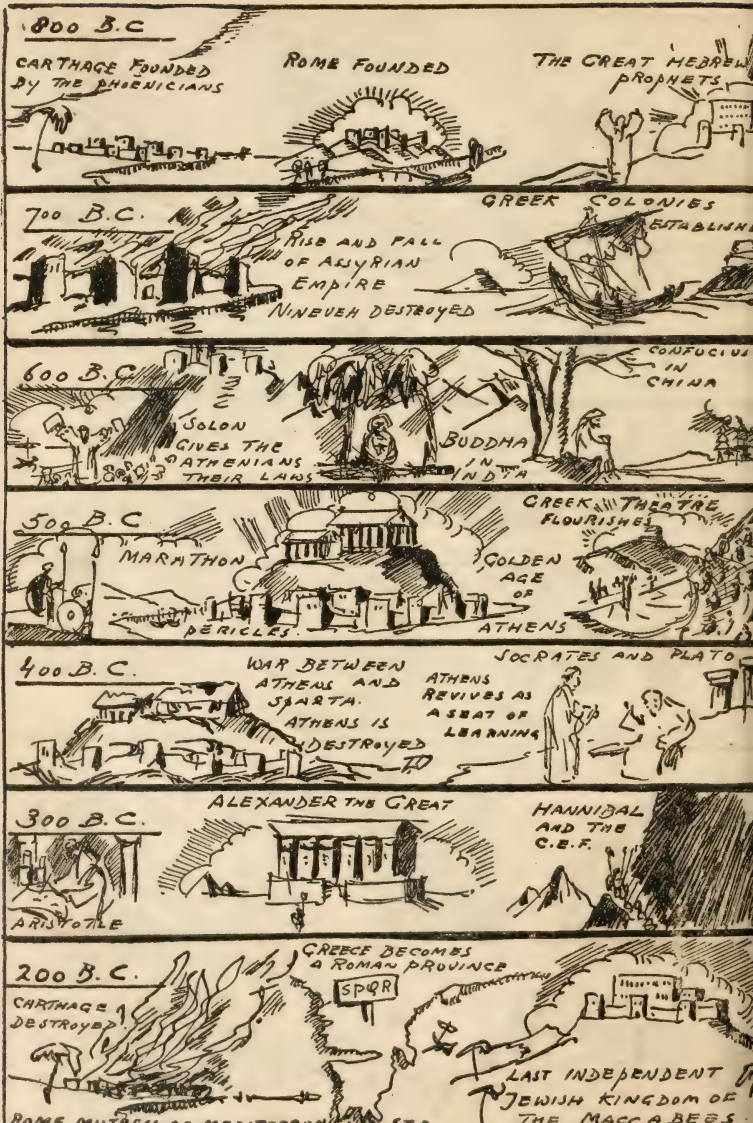 800 B.C
CARTHAGE FOUNDED
BY THE PHOENICIANS
ROME FOUNDED
THE GREAT HEBREW
PROPHETS
700 B.C.
RISE AND FALL
OF ASSYRIAN
EMPIRE
NINEVEH DESTROYED
GREEK COLONIES
ESTABLISHE
600 B.C.
SOLON
GIVES THE
ATHENIANS
THEIR LAWS
BUDDHA
IN
INDIA
CONFUCIUS
IN
CHINA
500 B.C
MARATHON
PERICLES.
GOLDEN
AGE
OF
ATHENS
GREEK THEATRE
FLOURISHES
400 B.C.
WAR BETWEEN
ATHENS AND
SPARTA.
ATHENS IS
DESTROYED
ATHENS
REVIVES AS
A SEAT OF
LEARNING
SOCRATES AND PLATO
300 B.C.
ARISTOTLE
ALEXANDER THE GREAT
HANNIBAL
AND THE
C.E.F.
200 B.C.
CARTHAGE
DESTROYED!
GREECE BECOMES
A ROMAN PROVINCE
SPQR
LAST INDEPENDENT
JEWISH KINGDOM OF
THE MACCABEES.
ROME